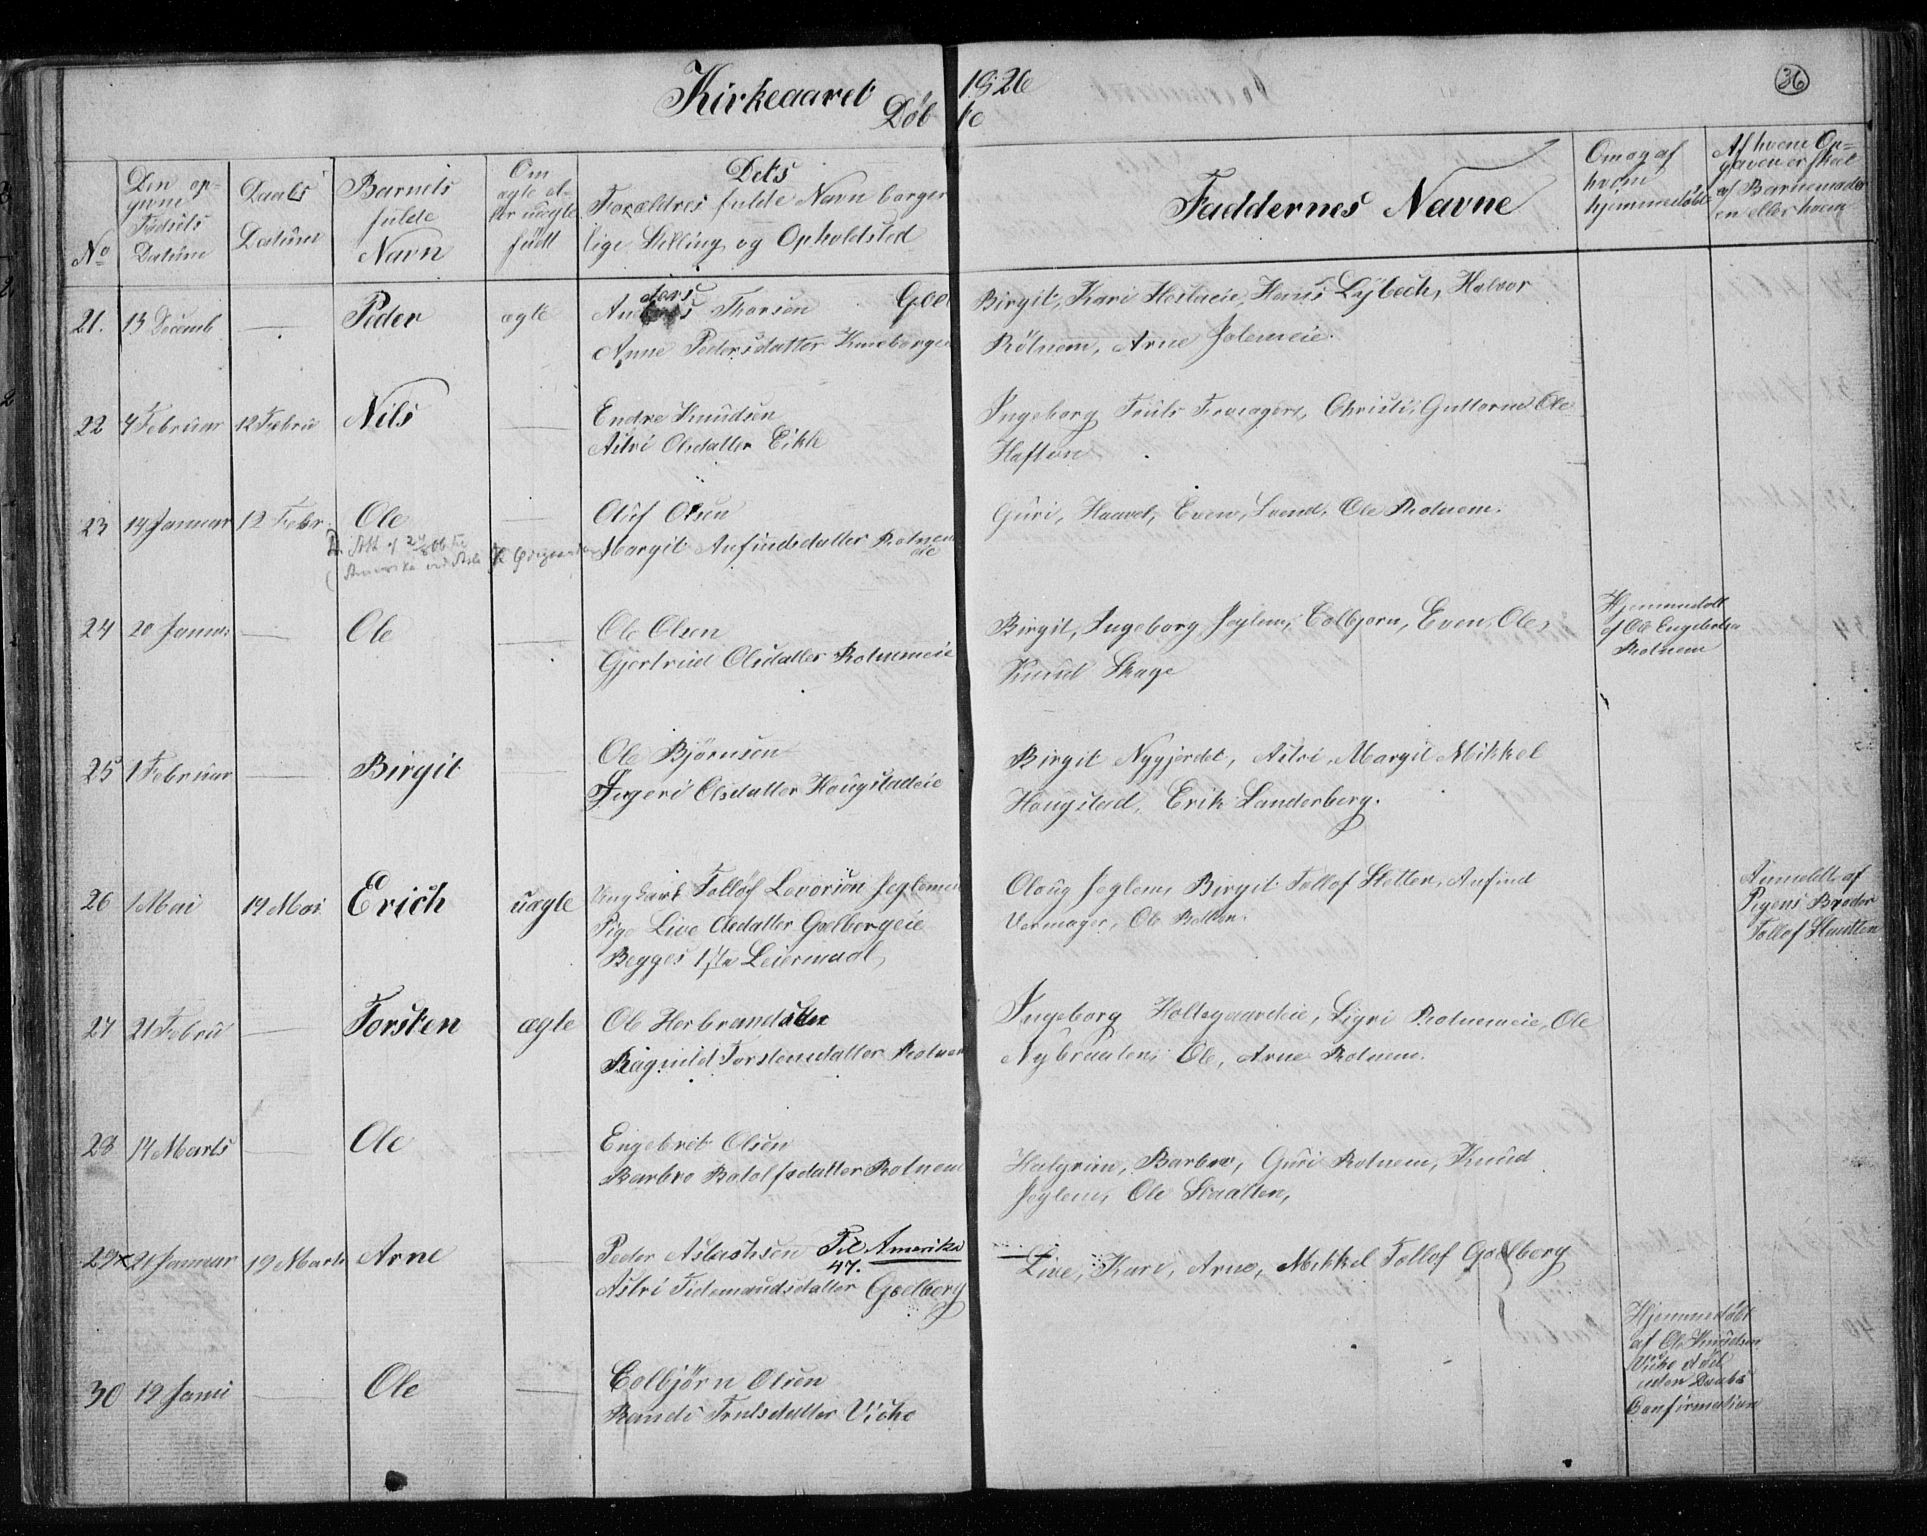 Kirkeaaret 1826
Døbte
36
No
Den op-
givne
Fødsels
Datum
Daabs
Datum
Barnets
fulde
Navn
Om
ægte el-
ler uægte
født
Dets
Forældres fulde Navn borger
lige Stilling og Opholdsted
Faddernes Navne
Om og af
hvem
hjemmedøbt
Af hvem Op-
gaven er skeet
af Barnemoder
en eller hvem
21. 13 Decemb — Peder ægte Anders Thorsen
Anne Pedersdatter
Birgit, Kari Hans Lybech, Halvor
Rotnem, Arne
22 4 Februar 12 Febru Nils — Endre Knudsen
Astri Olsdatter Eikle
Ingeborg Truls Christi, Guttorm Ole
Haften
23 14 Januar 12 Febr. Ole — Oluf Olsen
Margit Anfindsdatter Rotnem
eie
Guri, Haavel, Even, Svend, Ole Rotnem.
24 20 Janua — Ole — Ole Olsen
Gjertrud Olsdatter Rotnemeie
Birgit, Ingeborg Jeglem, Colbjorn, Even, Ole,
Knud Skage
Hjemmedøbt
af Ole Engebrets
Rotnem
25 1 Februar — Birgit — Ole Bjørnsen
Ingeri Olsdatter Hougstadeie
Birgit Nygjerdet, Astri, Margit Mikkel
Hougstad, Erik Sanderberg.
26 1 Mai 19 Mai Erich uægte Ungkarl Tolløf Levorsøn Jeglemeie
Pige Live Olsdatter Gælbergeie
Begges 1ste Leiermaal,
Oloug Jeglem, Birgit Tollof Sletten, Anfind
Vermager, Ole
Anmeldt af
Pigens Broder
Tollof Slaatten
27 21 Febru — Torsten ægte Ole Herbrandsen
Ragnild Torstensdatter Rotnem
Ingeborg Holtegaardeie, Sigri Rotnemeie, Ole
Nybraaten, Ole, Arne Rotnem.
28 14 Marts — Ole — Engebret Olsen
Barbro Botolfsdatter Rotnem
Halgrim, Barbro, Guri Rotnem, Knud
Jeglem, Ole Slaatten,
29 x 21 Januar 19 Marts Arne — Peder Aslachsen Til Amerika
47.
Astri Tidemandsdatter Gælberg
Live, Kari, Arne, Mikkel Tollof Gælberg
30 19 Janu — Ole — Colbjörn Olsen
Randi Trulsdatter Viche
Hjemmedøbt
af Ole Knudsen
Viche død
uden Daabs
Confirmation